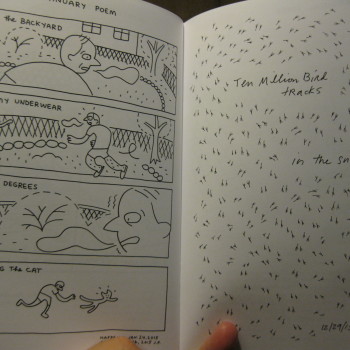 ANUARY POEM
the BACKYARD
MY UNDERWEAR
DEGREES
G The CAT
JAN. 20, 2015
Ten Million Bird
tracks
in the sn